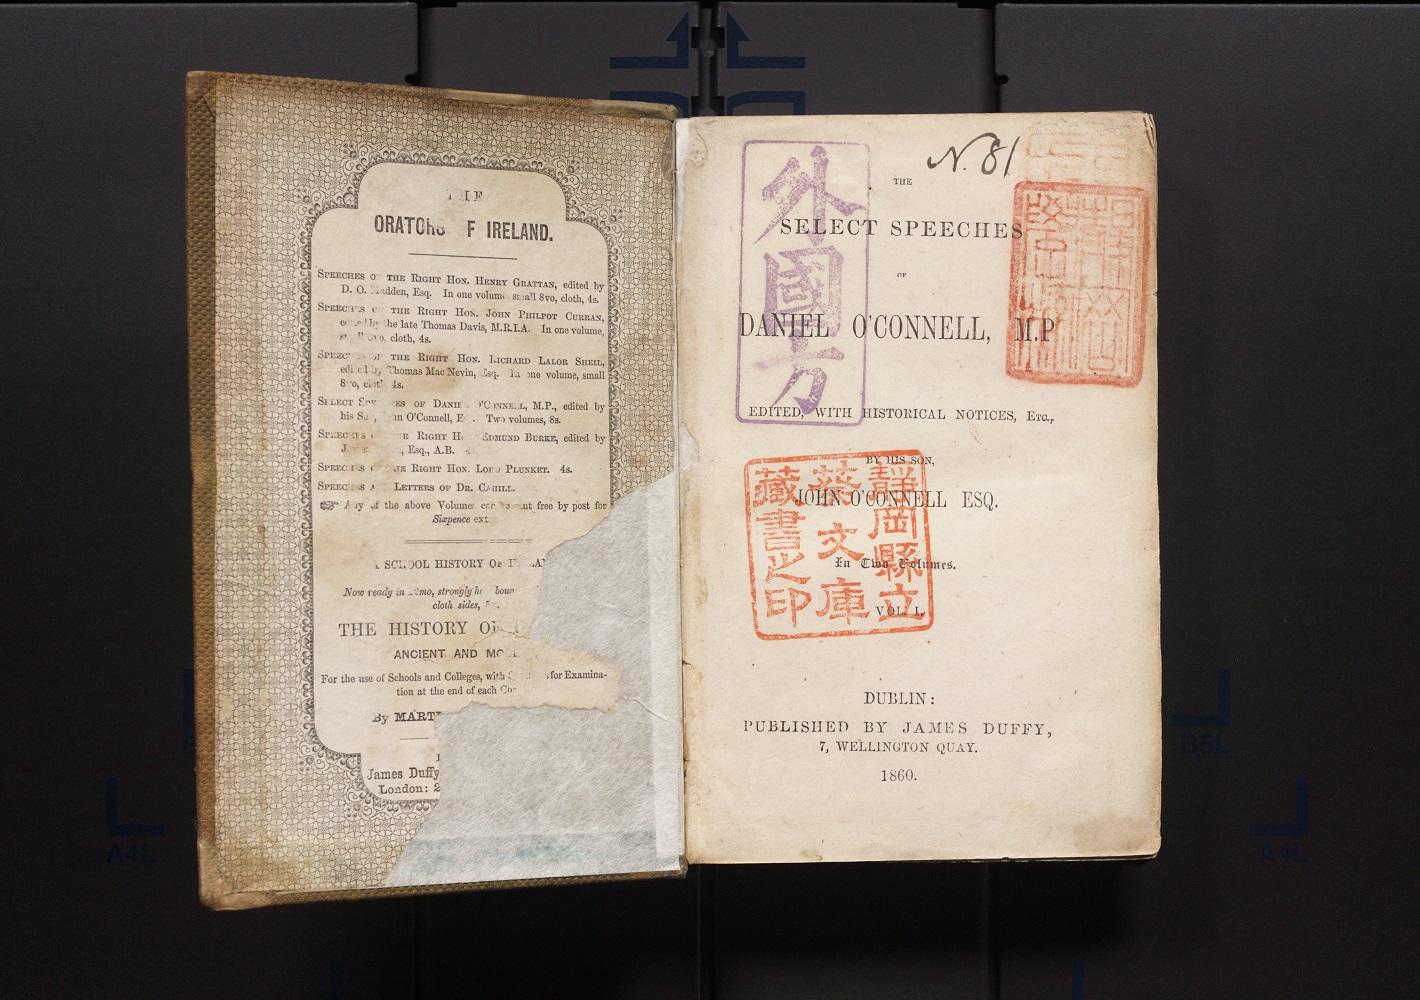 ORATORS F IRELAND.
SPEECHES OF THE RIGHT HON. HENRY GRATTAN, edited by
D. O. Madden, Esq. In one volume, small 8vo, cloth, 4s.
SPEECHES OF THE RIGHT HON. JOHN PHILPOT CURRAN,
edited by the late Thomas Davis, M.R.I.A. In one volume,
small 8vo. cloth, 4s.
SPEECHES OF THE RIGHT HON. RICHARD LALOR SHEIL,
edited by Thomas Mac Nevin, Esq. In one volume, small
8vo, cloth 4s.
SELECT SPEECHES OF DANIEL O'CONNELL, M.P., edited by
his Son, John O'Connell, Esq. Two volumes, 8s.
SPEECHES OF THE RIGHT HON. EDMUND BURKE, edited by
, Esq., A.B.
SPEECHES OF THE RIGHT HON. LORD PLUNKET. 4s.
SPEECHES AND LETTERS OF DR. CAHILL.
☞ Any of the above Volumes can be sent free by post for
Sixpence ext
A SCHOOL HISTORY OF
Now ready in 12mo, strongly
cloth sides,
THE HISTORY OF
ANCIENT AND MO
For the use of Schools and Colleges, with for Examina-
tion at the end of each
By MART
James Duffy
London: 2
N. 81
外國方
THE
SELECT SPEECHES
OF
DANIEL O'CONNELL, M.P
EDITED, WITH HISTORICAL NOTICES, ETC.,
BY HIS SON,
JOHN O'CONNELL ESQ.
In Two Volumes.
VOL. I.
靜岡縣立
葵文庫
藏書之印
DUBLIN:
PUBLISHED BY JAMES DUFFY,
7, WELLINGTON QUAY.
1860.
B5L
A4L
A4L